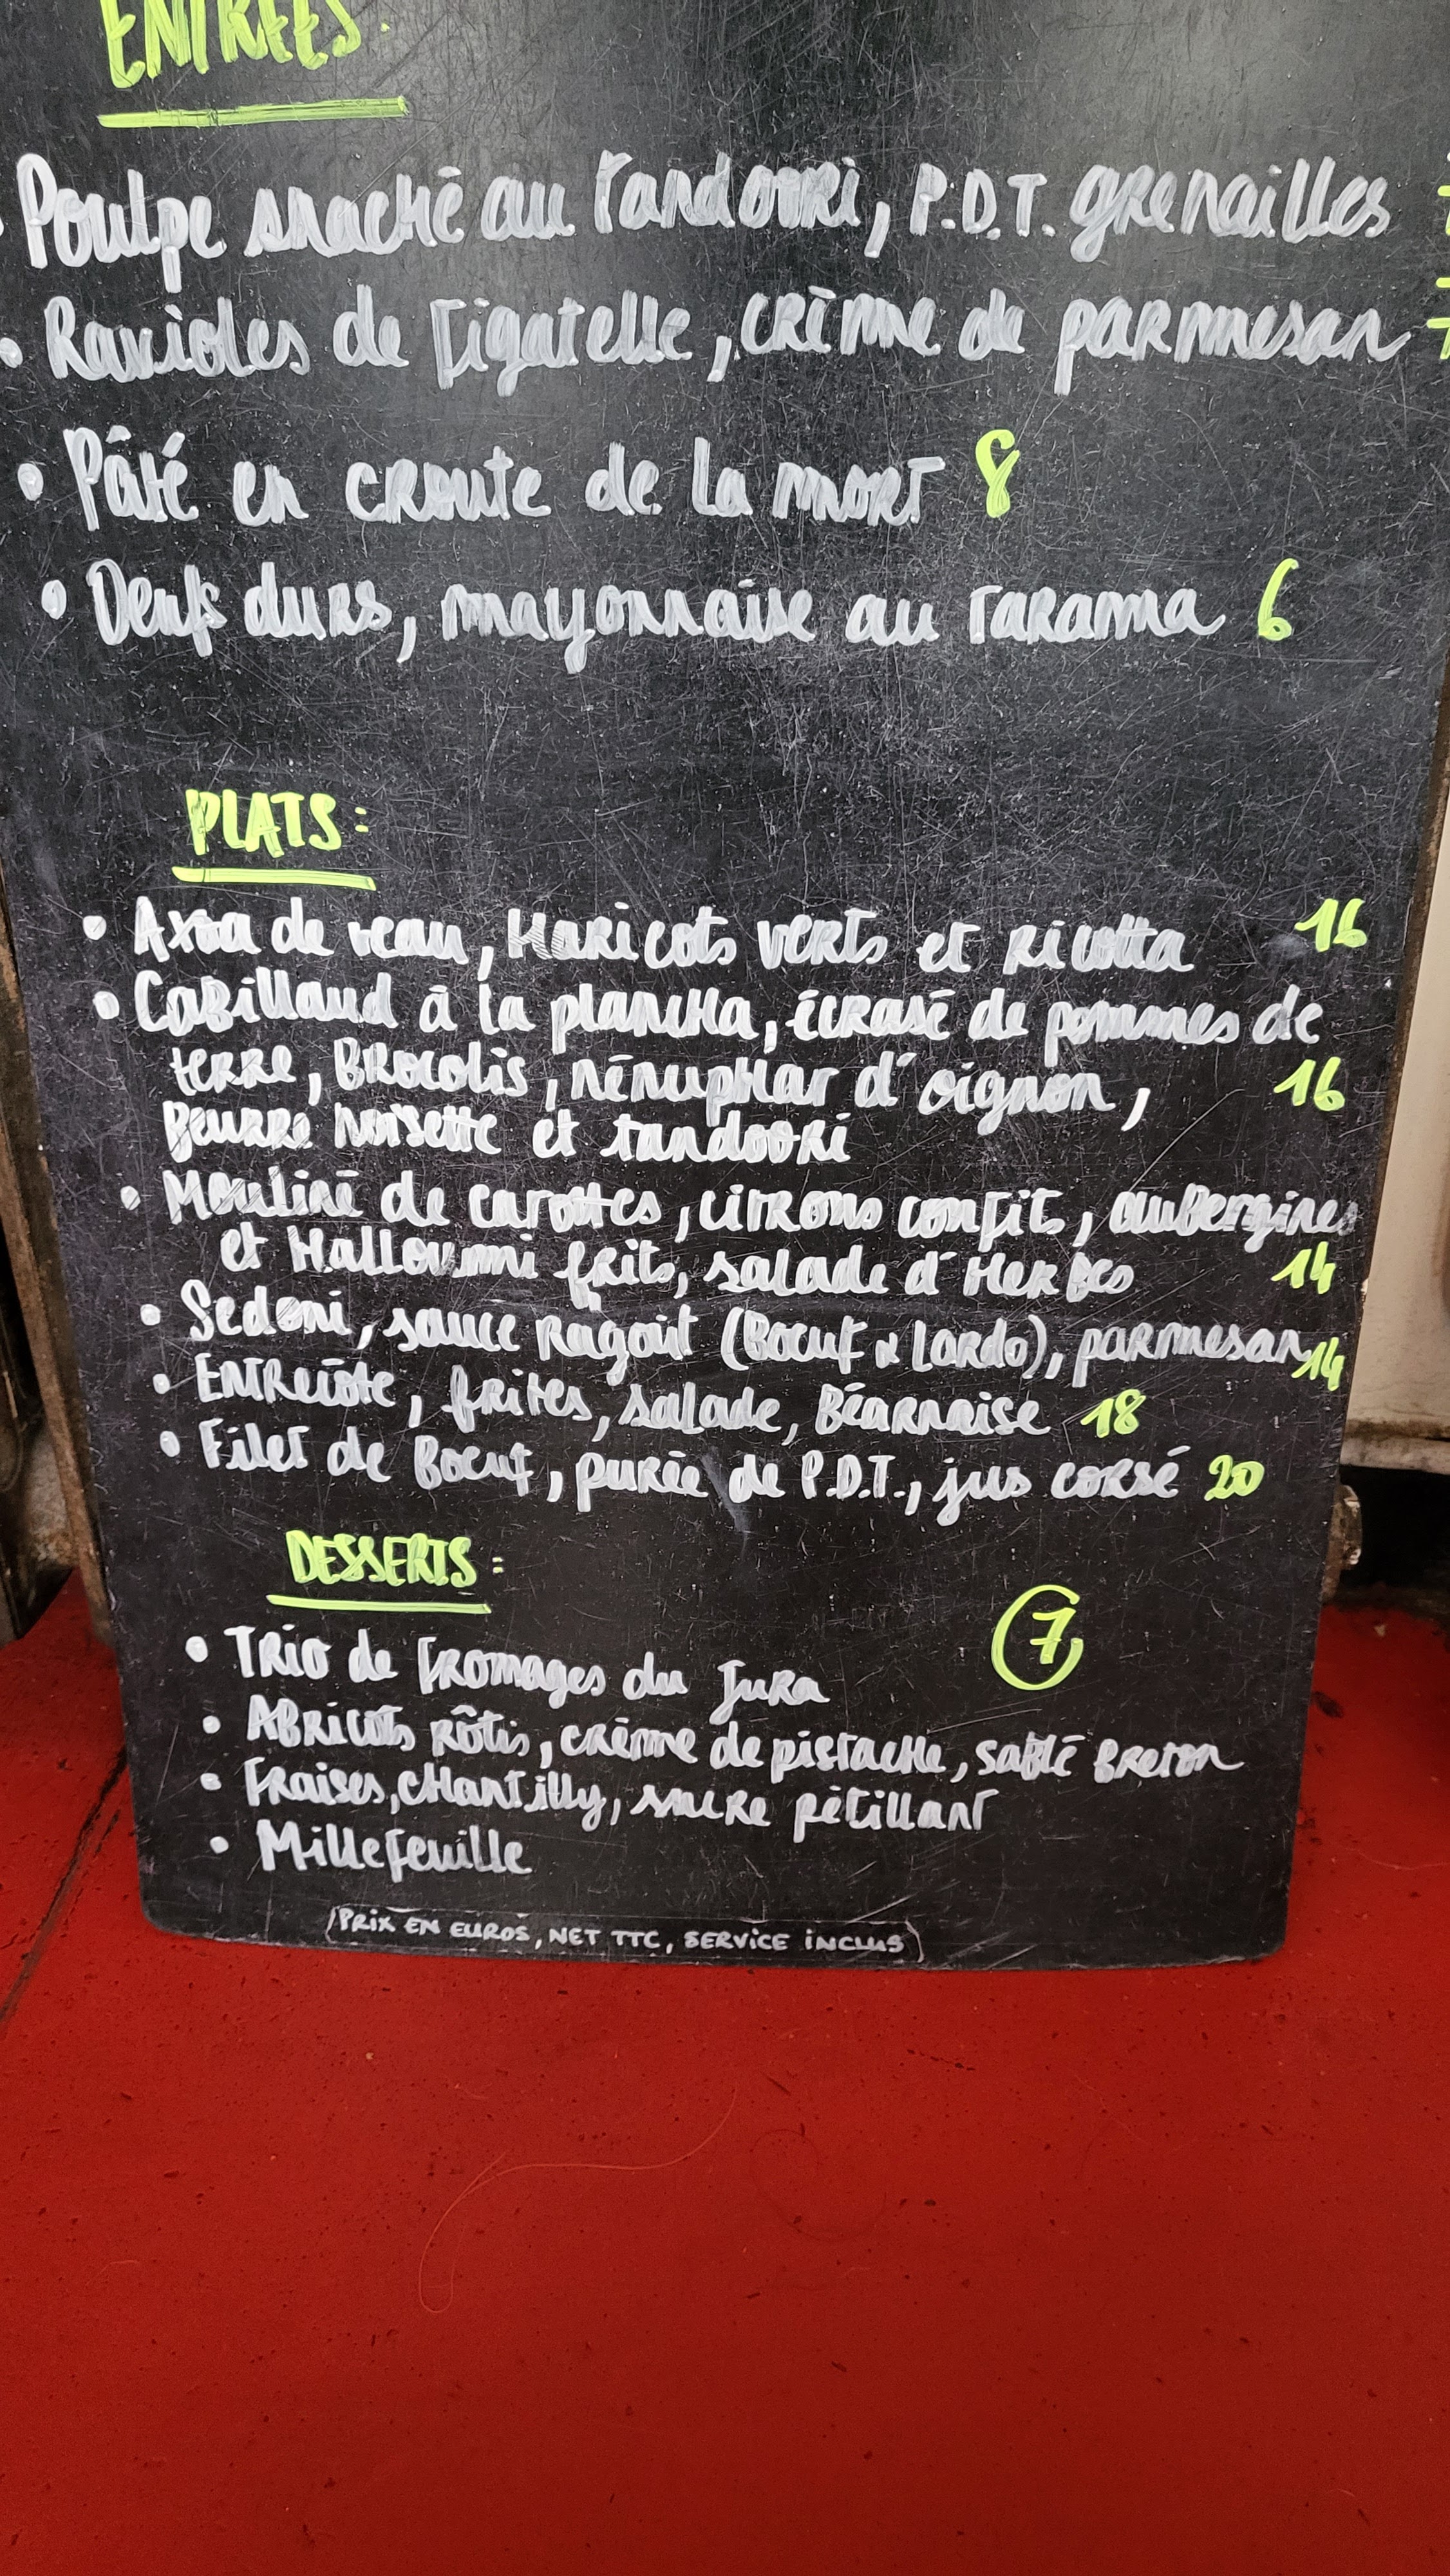 ENTRÉES:
Poulpe snacké au Tandoori, P.D.T. grenailles
• Ravioles de figatelle, crème de parmesan
• Pâté en croute de la mort 8
• Oeufs durs, mayonnaise au tarama 6
PLATS:
• Axoa de veau, Haricots verts et ricotta 16
• Cabillaud à la plancha, écrasé de pommes de
terre, Brocolis, nénuphar d'oignon, 16
Beurre Noisette et tandoori
• Mouliné de carottes, citrons confits, aubergines
et Halloumi frits, salade d'Herbes 14
• Sedani, sauce Ragoût (Boeuf & Lardo), parmesan 14
• Entrecôte, frites, salade, Béarnaise 18
• Filet de Boeuf, purée de P.D.T., jus corsé 20
DESSERTS: 7
• Trio de Fromages du Jura
• Abricots rôtis, crème de pistache, sablé Breton
• Fraises, chantilly, sucre pétillant
• Millefeuille
(PRIX EN EUROS, NET TTC, SERVICE INCLUS)